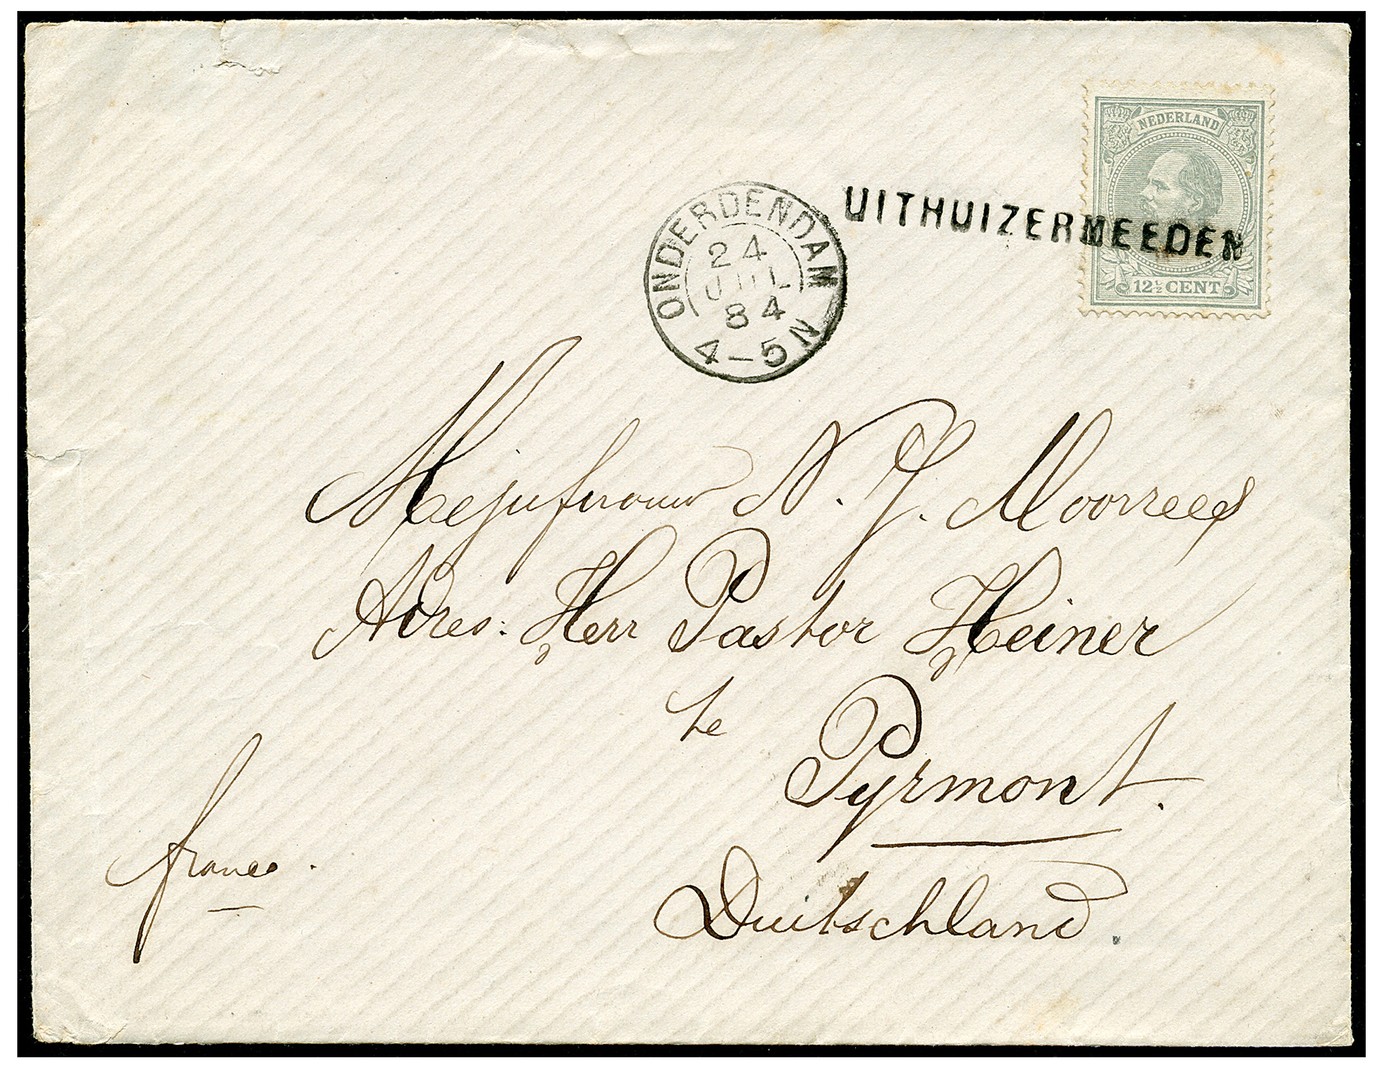 NEDERLAND
12½ CENT
UITHUIZERMEEDEN
ONDERDENDAM
24
JUL
84
4-5N
Mejufvrouw N. J. Moorrees
Adres: Herr Pastor Heiner
te
Pyrmont.
franco.
Duitschland.